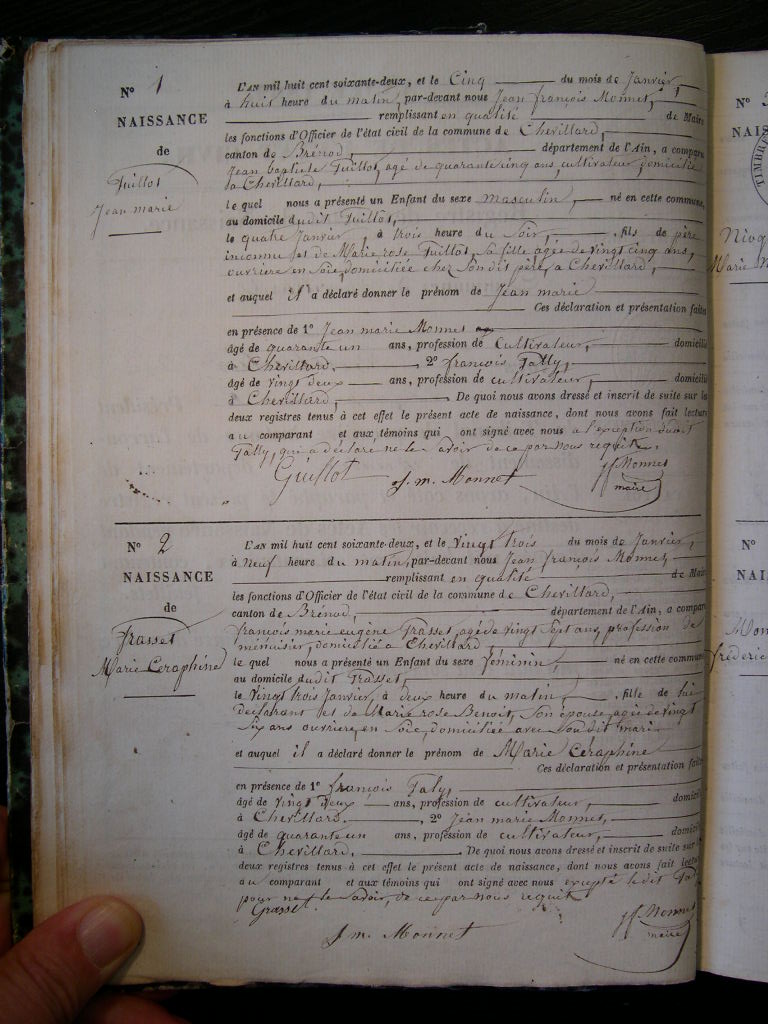 N° 1
NAISSANCE
de
Guillot
Jean marie
L'AN mil huit cent soixante-deux, et le Cinq du mois de Janvier,
à huit heure du matin, par-devant nous Jean françois Monnet,
remplissant en qualité de Maire
les fonctions d'Officier de l'état civil de la commune de Chevillard,
canton de Brénod, département de l'Ain, a comparu
Jean baptiste Guillot, agé de quarante cinq ans, cultivateur, domicilié
à Chevillard,
le quel nous a présenté un Enfant du sexe masculin, né en cette commune,
au domicile dudit Guillot,
le quatre Janvier, à trois heure du Soir, fils de père
inconnu et de Marie rose Guillot, sa fille agée de vingt cinq ans,
ouvrière en Soie, domiciliée chez son dit père, à Chevillard,
et auquel il a déclaré donner le prénom de Jean marie
Ces déclaration et présentation faites
en présence de 1° Jean marie Monnet
âgé de quarante un ans, profession de Cultivateur, domicilié
à Chevillard, 2° françois Tally,
âgé de vingt deux ans, profession de cultivateur, domicilié
à Chevillard, De quoi nous avons dressé et inscrit de suite sur les
deux registres tenus à cet effet le présent acte de naissance, dont nous avons fait lecture
au comparant et aux témoins qui ont signé avec nous à l'exception dudit
Tally, qui a déclaré ne le savoir de ce par nous requis.
Guillot J. m. Monnet jf Monnet
maire
N° 2
NAISSANCE
de
Grasset
Marie Ceraphine
L'AN mil huit cent soixante-deux, et le Vingt trois du mois de Janvier,
à Neuf heure du matin, par-devant nous Jean françois Monnet,
remplissant en qualité de Maire
les fonctions d'Officier de l'état civil de la commune de Chevillard,
canton de Brénod, département de l'Ain, a comparu
françois marie eugène Grasset, agé de vingt Sept ans, profession de
menuisier, domicilié à Chevillard
le quel nous a présenté un Enfant du sexe féminin, né en cette commune
au domicile dudit Grasset,
le Vingt trois Janvier, à deux heure du matin, fille de lui
déclarant et de Marie rose Benoit, Son épouse, agée de vingt
Six ans ouvrière en Soie, domiciliée avec Son dit mari
et auquel il a déclaré donner le prénom de Marie Céraphine
Ces déclaration et présentation faites
en présence de 1° françois Taly,
âgé de vingt deux ans, profession de cultivateur, domicilié
à Chevillard, 2° Jean marie Monnet,
âgé de quarante un ans, profession de cultivateur, domicilié
à Chevillard, De quoi nous avons dressé et inscrit de suite sur les
deux registres tenus à cet effet le présent acte de naissance, dont nous avons fait lecture
au comparant et aux témoins qui ont signé avec nous excepté ledit
pour ne le Savoir, de ce par nous requit
Grasset
J m. Monnet jf Monnet
maire